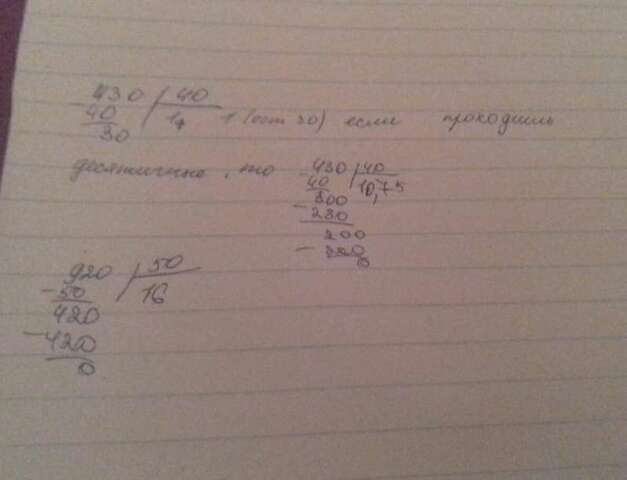 430 | 40
40
30
1 (ост 30) если проходишь
десятично, то 430 | 40
40 10,75
300
- 280
200
- 200
0
920 | 50
- 50 16
420
- 420
0